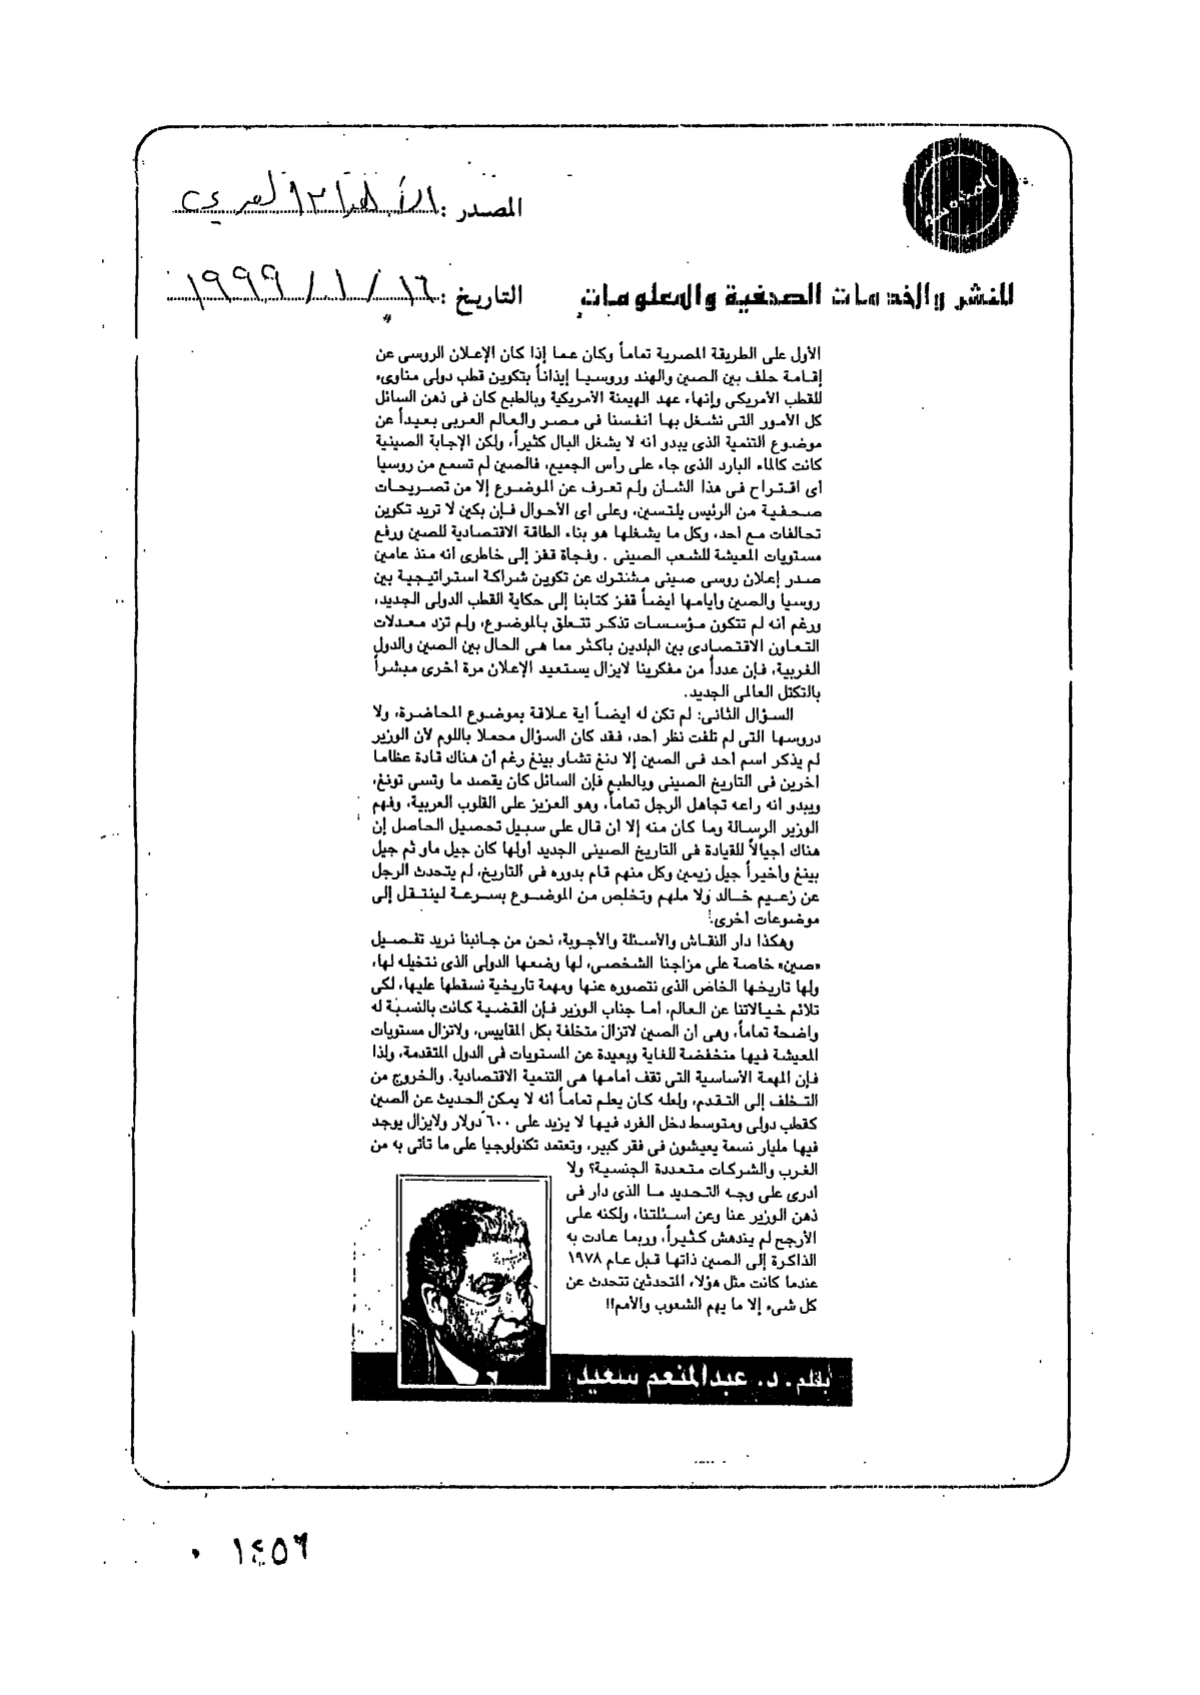 المصدر : الأهرام العربي
للنشر والخدمات الصحفية والمعلومات
التاريخ : ١٦ / ١ / ١٩٩٩
الأول على الطريقة المصرية تماماً وكان عما إذا كان الإعلان الروسى عن
إقامة حلف بين الصين والهند وروسيا إيذاناً بتكوين قطب دولى مناوىء
للقطب الأمريكى وإنهاء عهد الهيمنة الأمريكية وبالطبع كان فى ذهن السائل
كل الأمور التى نشغل بها أنفسنا فى مصر والعالم العربى بعيداً عن
موضوع التنمية الذى يبدو أنه لا يشغل البال كثيراً، ولكن الإجابة الصينية
كانت كالماء البارد الذى جاء على رأس الجميع، فالصين لم تسمع من روسيا
أى اقتراح فى هذا الشأن ولم تعرف عن الموضوع إلا من تصريحات
صحفية من الرئيس يلتسين، وعلى أى الأحوال فإن بكين لا تريد تكوين
تحالفات مع أحد، وكل ما يشغلها هو بناء الطاقة الاقتصادية للصين ورفع
مستويات المعيشة للشعب الصينى . وفجأة قفز إلى خاطرى أنه منذ عامين
صدر إعلان روسى صينى مشترك عن تكوين شراكة استراتيجية بين
روسيا والصين وأيامها أيضاً قفز كتابنا إلى حكاية القطب الدولى الجديد،
ورغم أنه لم تتكون مؤسسات تذكر تتعلق بالموضوع، ولم تزد معدلات
التعاون الاقتصادى بين البلدين بأكثر مما هى الحال بين الصين والدول
الغربية، فإن عدداً من مفكرينا لايزال يستعيد الإعلان مرة أخرى مبشراً
بالتكتل العالمى الجديد.
السؤال الثانى: لم تكن له أيضاً أية علاقة بموضوع المحاضرة، ولا
دروسها التى لم تلفت نظر أحد، فقد كان السؤال محملا باللوم لأن الوزير
لم يذكر اسم أحد فى الصين إلا دنغ تشاو بينغ رغم أن هناك قادة عظاما
آخرين فى التاريخ الصينى وبالطبع فإن السائل كان يقصد ما وتسى تونغ،
ويبدو أنه راعه تجاهل الرجل تماماً، وهو العزيز على القلوب العربية، وفهم
الوزير الرسالة وما كان منه إلا أن قال على سبيل تحصيل الحاصل إن
هناك أجيالاً للقيادة فى التاريخ الصينى الجديد أولها كان جيل ماو ثم جيل
بينغ وأخيراً جيل زيمين وكل منهم قام بدوره فى التاريخ، لم يتحدث الرجل
عن زعيم خالد ولا ملهم وتخلص من الموضوع بسرعة لينتقل إلى
موضوعات أخرى!
وهكذا دار النقاش والأسئلة والأجوبة، نحن من جانبنا نريد تفصيل
«صين» خاصة على مزاجنا الشخصى، لها وضعها الدولى الذى نتخيله لها،
ولها تاريخها الخاص الذى نتصوره عنها ومهمة تاريخية نسقطها عليها، لكى
تلائم خيالاتنا عن العالم، أما جناب الوزير فإن القضية كانت بالنسبة له
واضحة تماماً، وهى أن الصين لاتزال متخلفة بكل المقاييس، ولاتزال مستويات
المعيشة فيها منخفضة للغاية وبعيدة عن المستويات فى الدول المتقدمة، ولذا
فإن المهمة الأساسية التى تقف أمامها هى التنمية الاقتصادية. والخروج من
التخلف إلى التقدم، ولعله كان يعلم تماماً أنه لا يمكن الحديث عن الصين
كقطب دولى ومتوسط دخل الفرد فيها لا يزيد على ٦٠٠ دولار ولايزال يوجد
فيها مليار نسمة يعيشون فى فقر كبير، وتعتمد تكنولوجيا على ما تأتى به من
الغرب والشركات متعددة الجنسية؟ ولا
أدرى على وجه التحديد ما الذى دار فى
ذهن الوزير عنا وعن أسئلتنا، ولكنه على
الأرجح لم يندهش كثيراً، وربما عادت به
الذاكرة إلى الصين ذاتها قبل عام ١٩٧٨
عندما كانت مثل هؤلاء المتحدثين تتحدث عن
كل شىء إلا ما يهم الشعوب والأمم!!
بقلم . د. عبدالمنعم سعيد
١٤٥٦